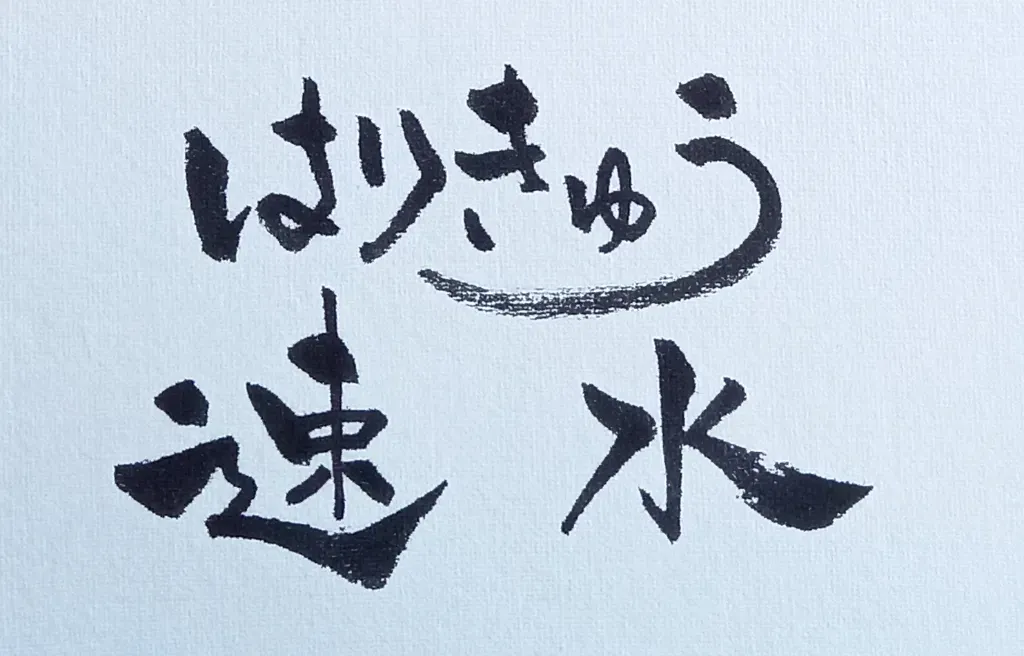 はりきゅう
速水